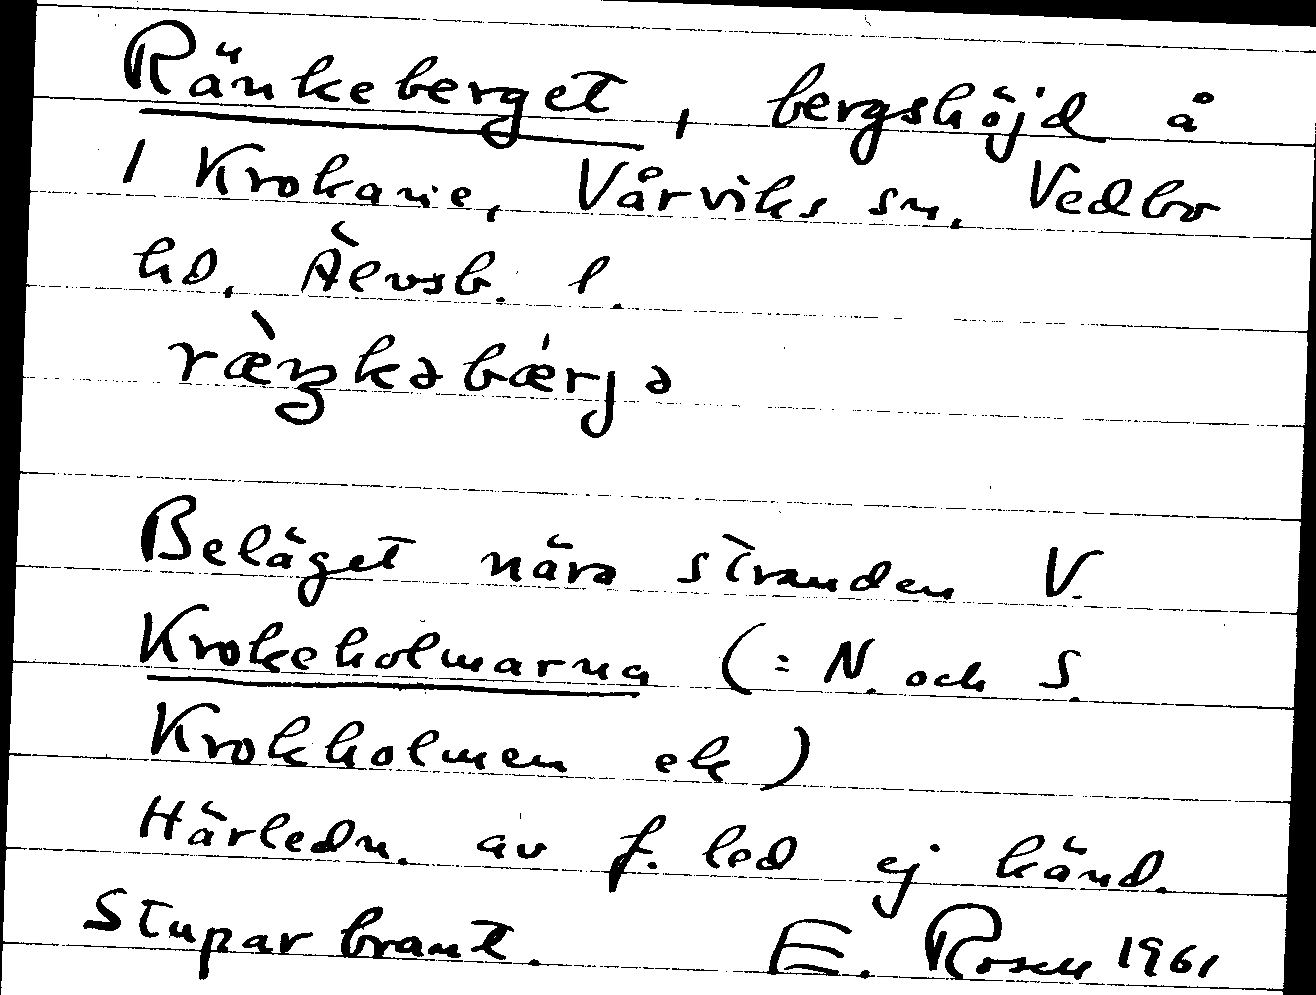 Ränkeberget, bergshöjd å
1 Krokane, Vårviks sn, Vedbo
hd, Älvsb. l.
ræ̀ŋkəbǽrjə
Beläget nära stranden V.
Krokeholmarna (= N. och S.
Krokholmen ek)
Härledn. av f. led ej känd.
Stupar brant. E. Rosell 1961